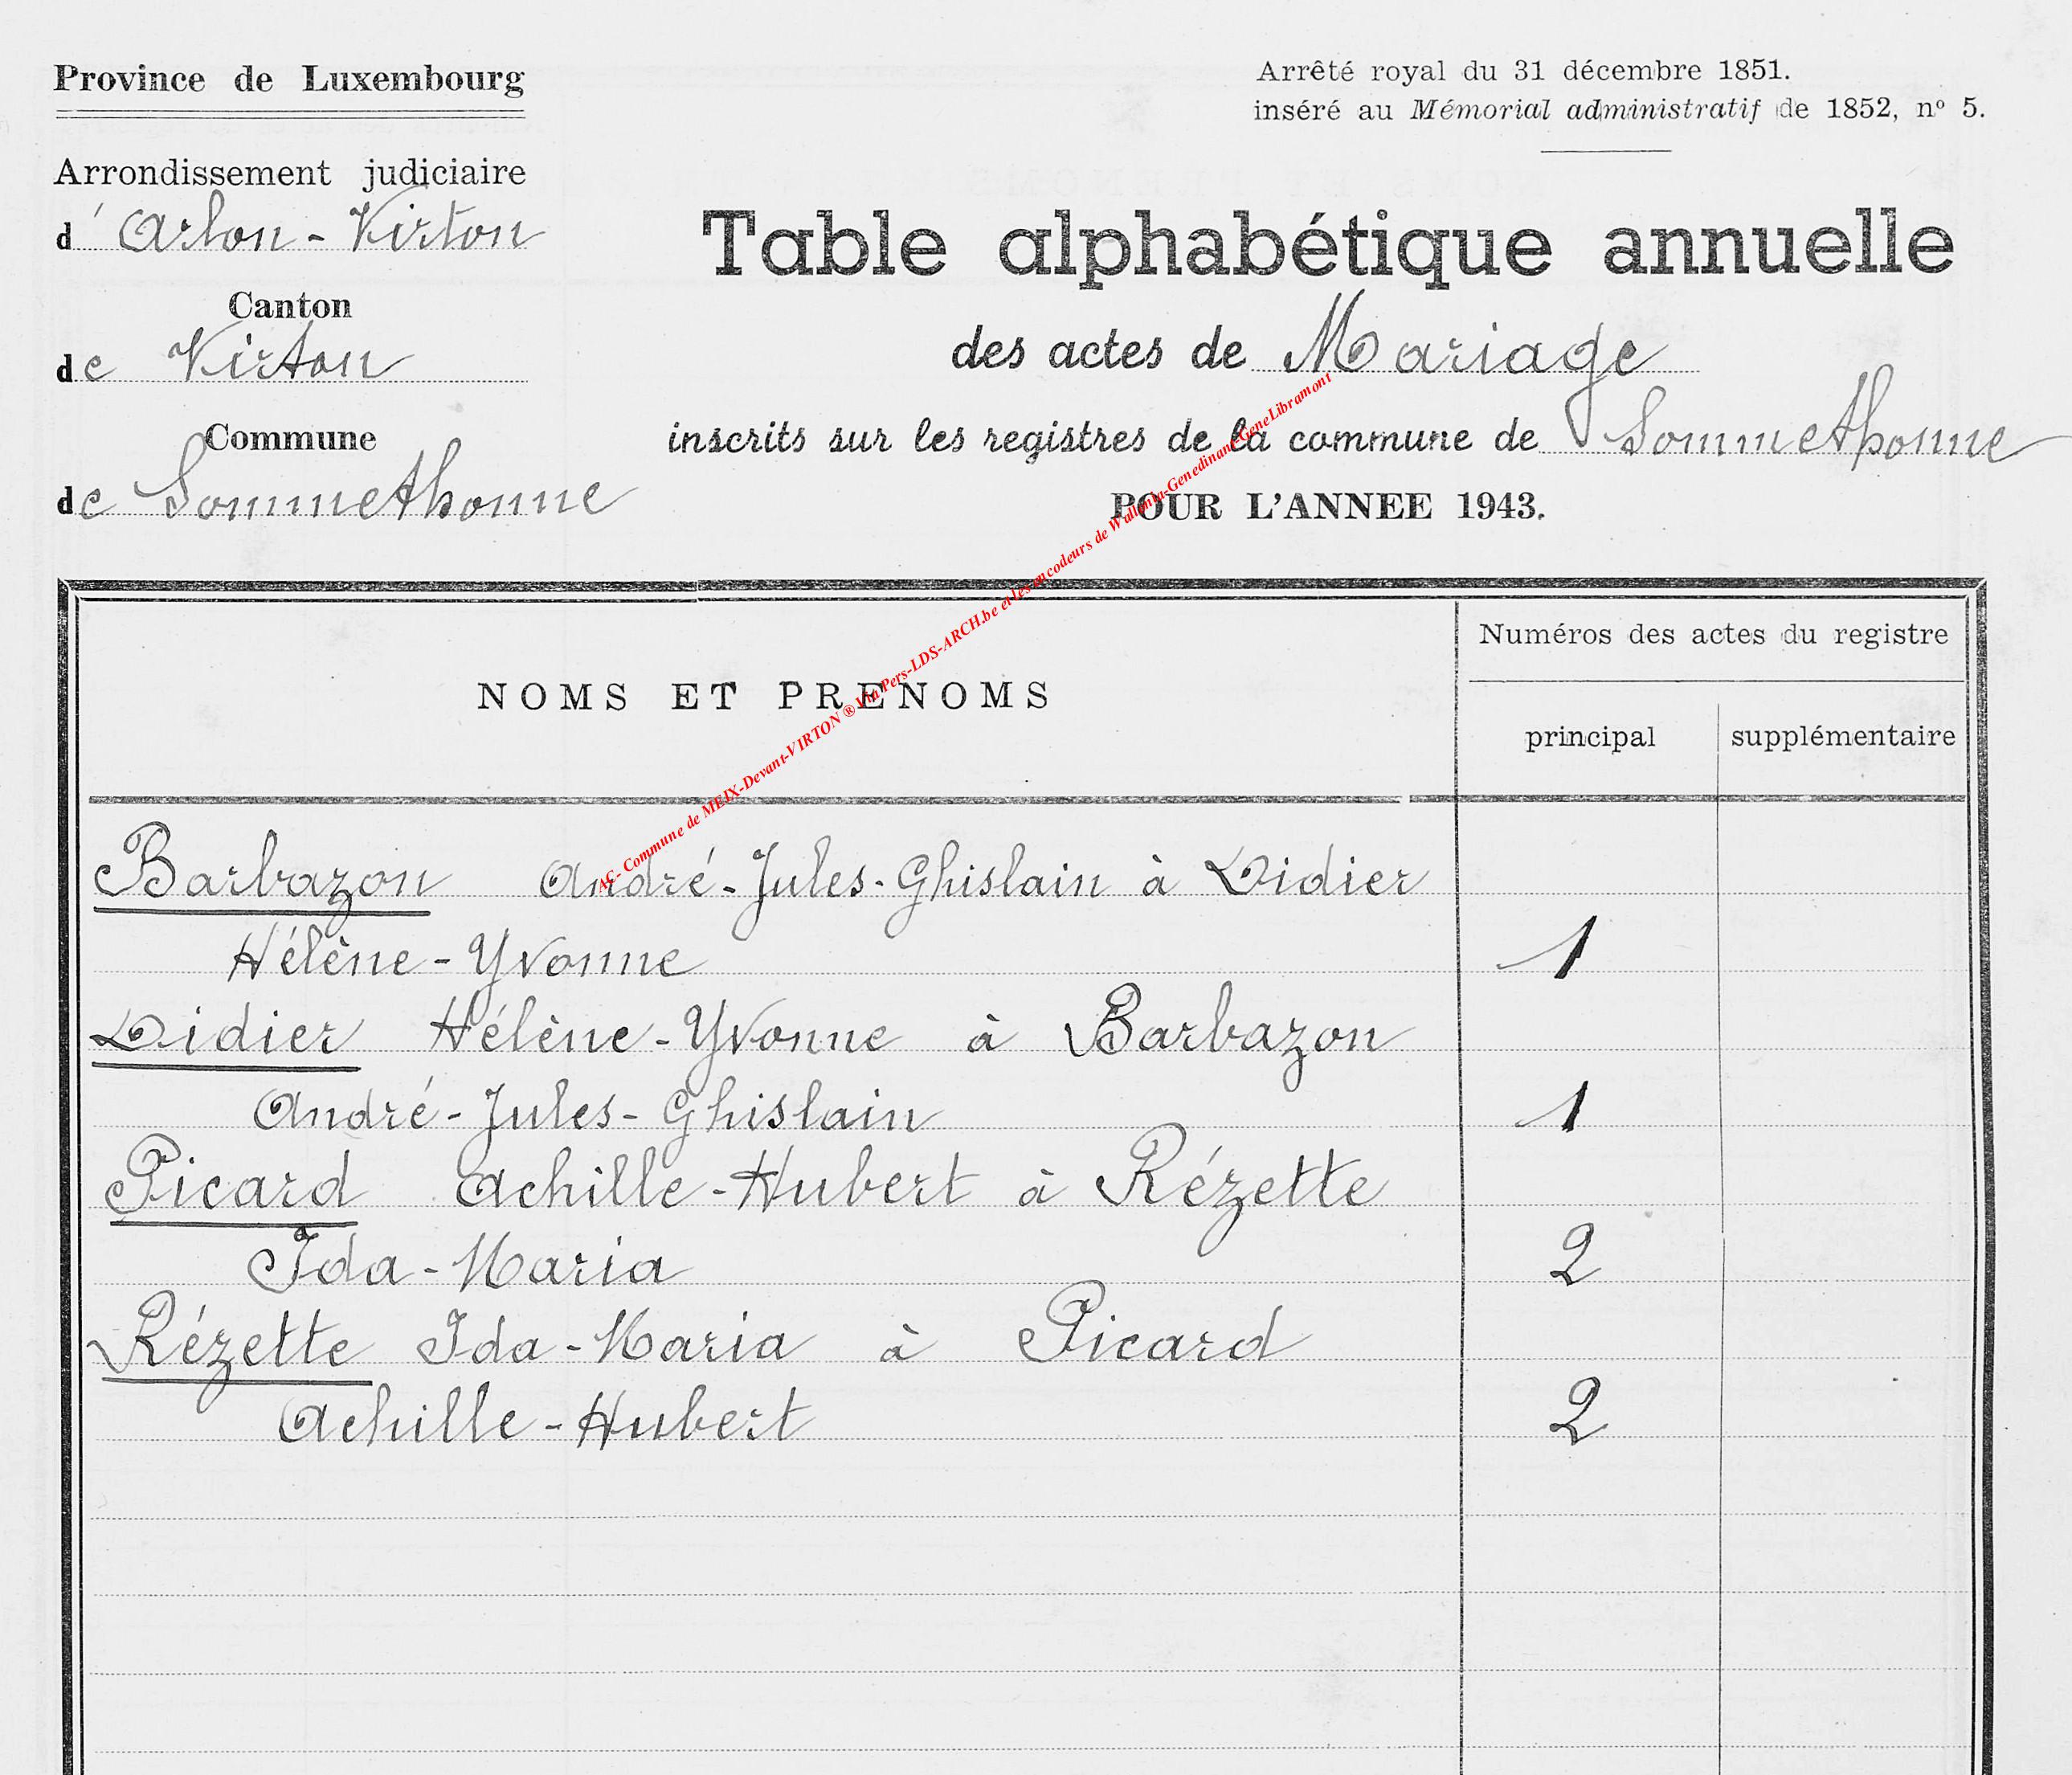 Province de Luxembourg
Arrondissement judiciaire
d' Arlon - Virton
Canton
de Virton
Commune
de Sommethonne
Arrêté royal du 31 décembre 1851.
inséré au Mémorial administratif de 1852, nº 5.
Table alphabétique annuelle
des actes de Mariage
inscrits sur les registres de la commune de Sommethonne
POUR L'ANNEE 1943.
NOMS ET PRENOMS
Numéros des actes du registre
principal supplémentaire
Barbazon André-Jules-Ghislain à Didier
Hélène-Yvonne 1
Didier Hélène-Yvonne à Barbazon
André-Jules-Ghislain 1
Picard Achille-Hubert à Rézette
Ida-Maria 2
Rézette Ida-Maria à Picard
Achille-Hubert 2
AC- Commune de MEIX-Devant-VIRTON ® Via Pers-LDS-ARCH.be et les encodeurs de Wallonia-Genedinant-GeneLibramont